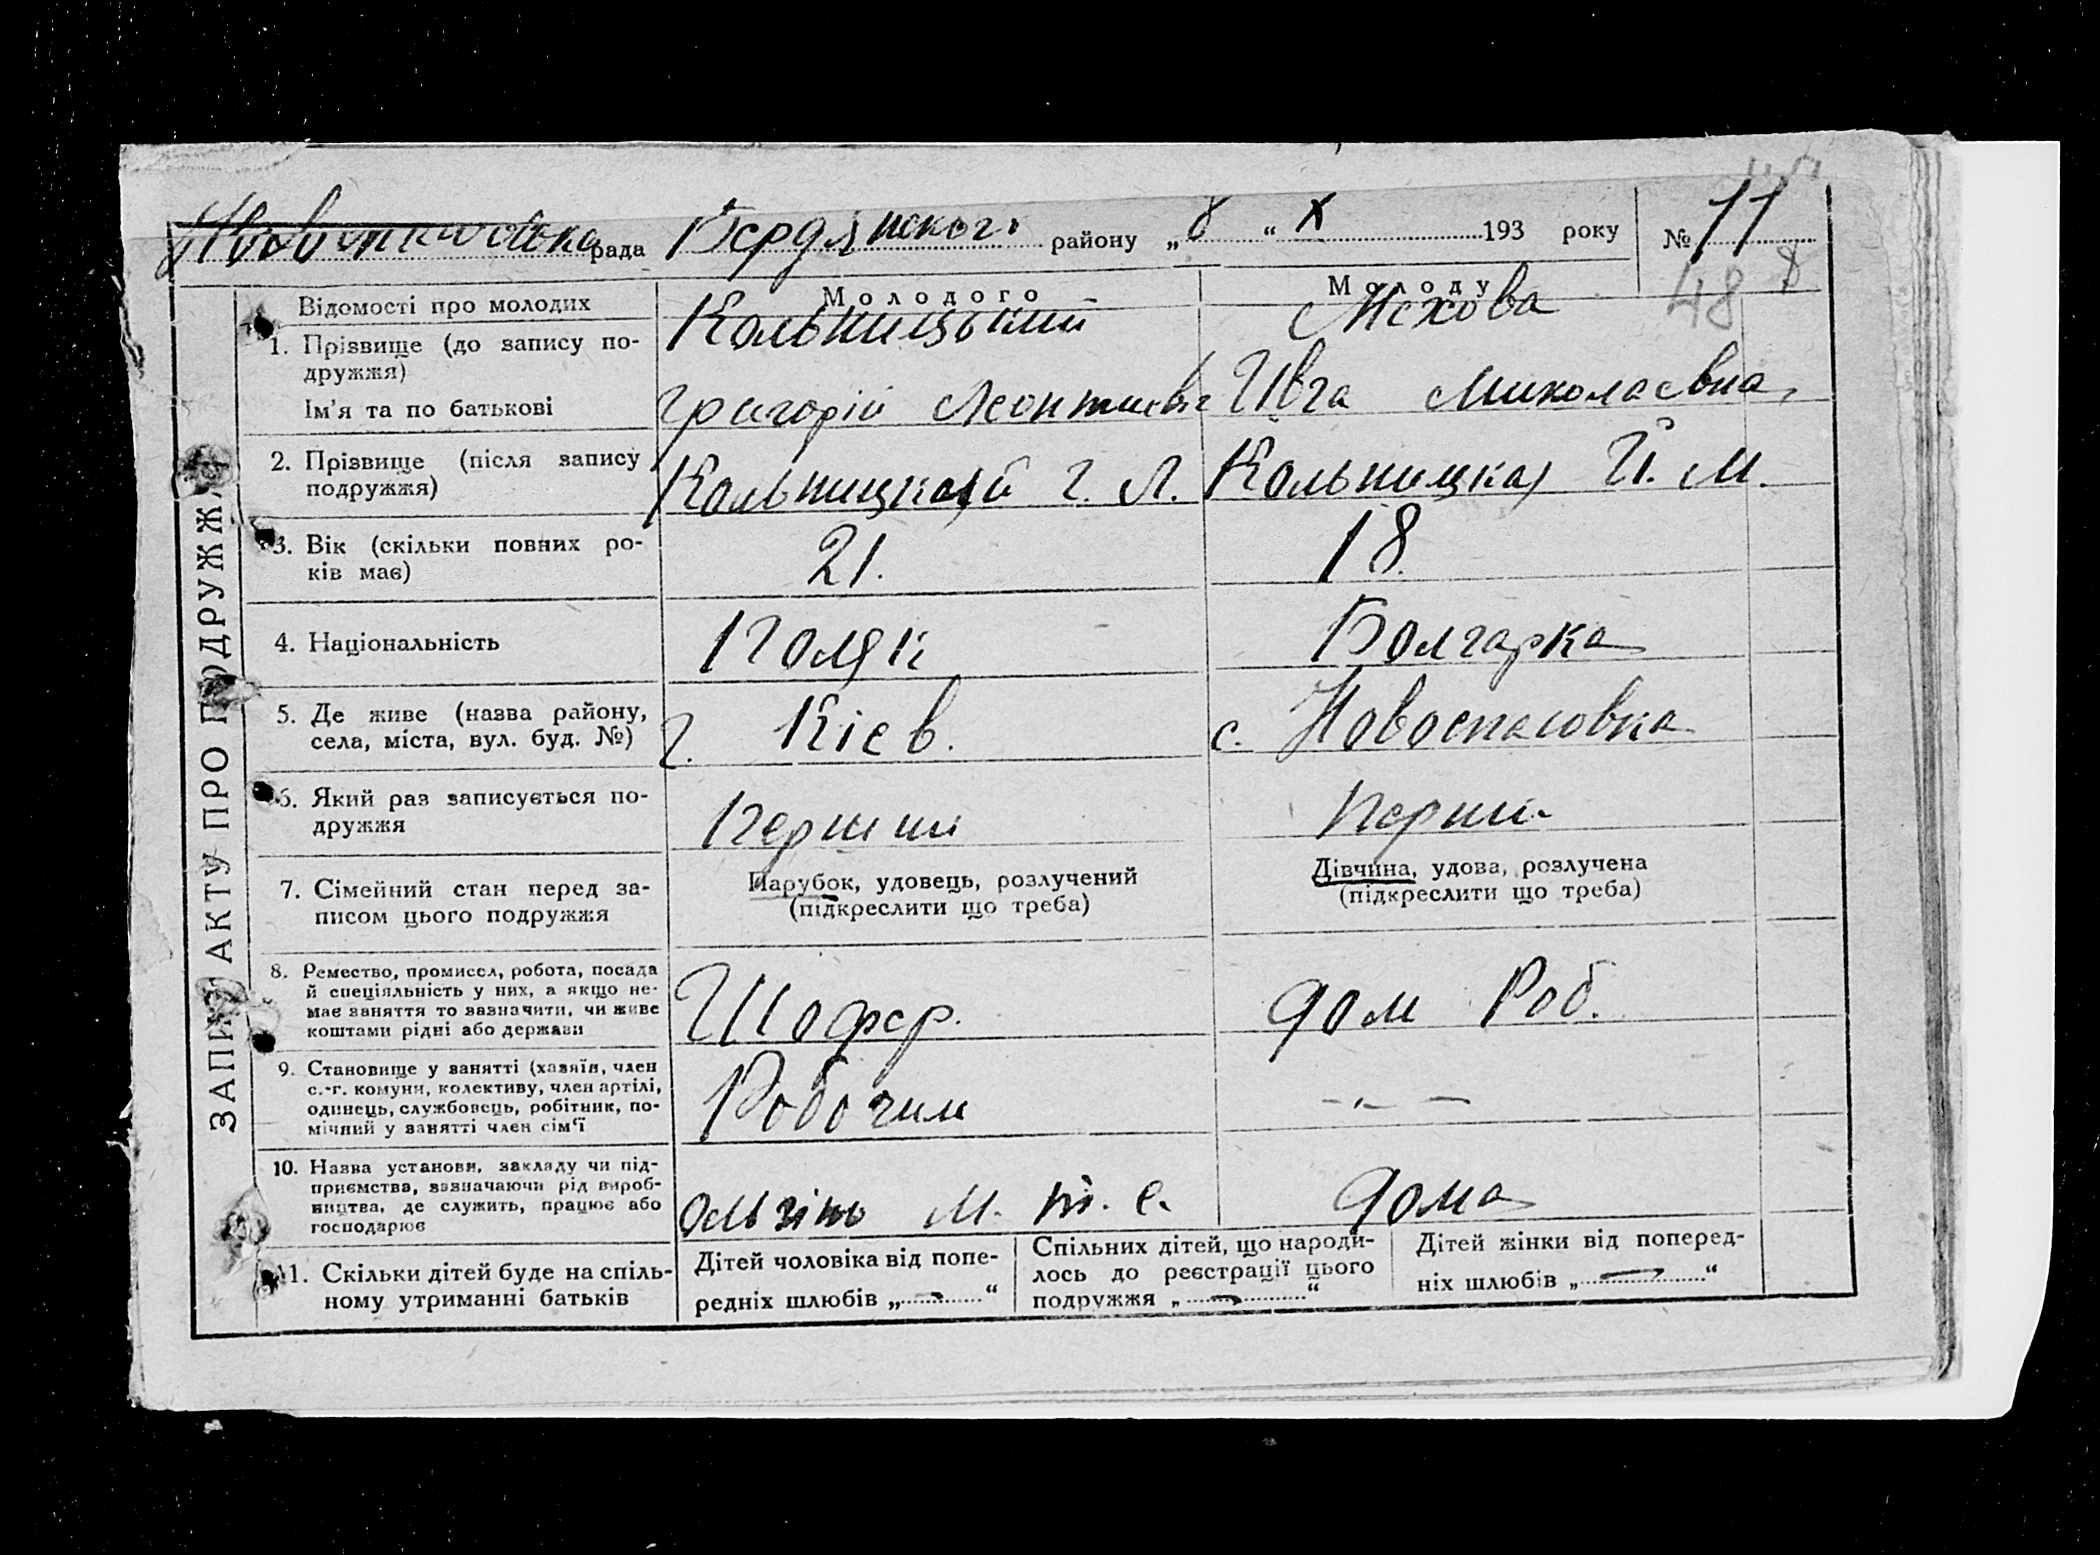 рада Бердянског району „ 8 “ X 193 року № 11
48
ЗАПИС АКТУ ПРО ПОДРУЖЖЯ
Відомості про молодих
Молодого
Молоду
1. Прізвище (до запису по-
дружжя)
Кольницький
Мехова
Ім'я та по батькові
Григорій Леонтиевіч
Ивга Миколаевна
2. Прізвище (після запису
подружжя)
Кольницкий Г. Л.
Кольницкая И. М.
3. Вік (скільки повних ро-
ків має)
21.
18.
4. Національність
Поляк
Болгарка
5. Де живе (назва району,
села, міста, вул. буд. №)
г. Кіев.
с. Новоспасовка
6. Який раз записується по-
дружжя
Перший
Перши
7. Сімейний стан перед за-
писом цього подружжя
Парубок, удовець, розлучений
(підкреслити що треба)
Дівчина, удова, розлучена
(підкреслити що треба)
8. Ремество, промисел, робота, посада
й спеціяльність у них, а якщо не-
має заняття то зазначити, чи живе
коштами рідні або держави
Шофер.
дом Роб.
9. Становище у занятті (хазяїн, член
с.-г. комуни, колективу, член артілі,
одинець, службовець, робітник, по-
мічний у занятті член сім'ї
Робочим
- „ -
10. Назва установи, закладу чи під-
приємства, зазначаючи рід вироб-
ництва, де служить, працює або
господарює
М. т. с.
дома
11. Скільки дітей буде на спіль-
ному утриманні батьків
Дітей чоловіка від попе-
редніх шлюбів „ - “
Спільних дітей, що народи-
лось до реєстрації цього
подружжя „ - “
Дітей жінки від поперед-
ніх шлюбів „ - “